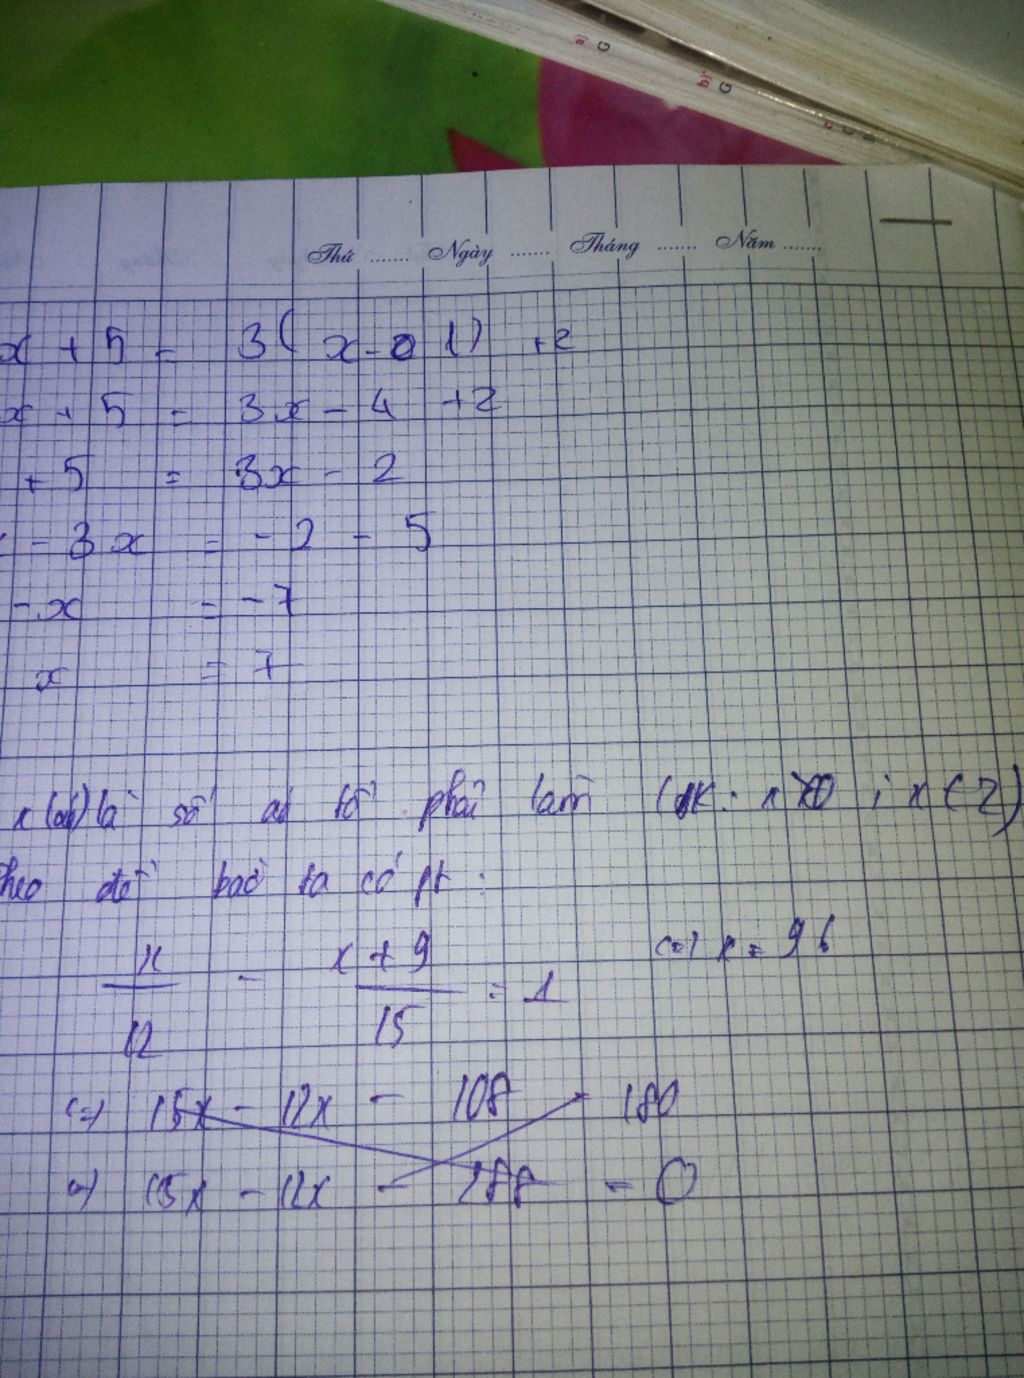 Thứ ....... Ngày ....... Tháng ....... Năm .......
x + 5 = 3( x - 1) + 2
x + 5 = 3x - 4 + 2
+ 5 = 3x - 2
- 3x = - 2 - 5
- x = - 7
x = 7
x (áo) là số áo tổ phải làm (đk: x > 0 ; x ∈ Z)
theo đề bài ta có pt:
x/12 - (x + 9)/15 = 1 <=> x = 96
<=> 15x - 12x - 108 = 180
<=> 15x - 12x - 288 = 0